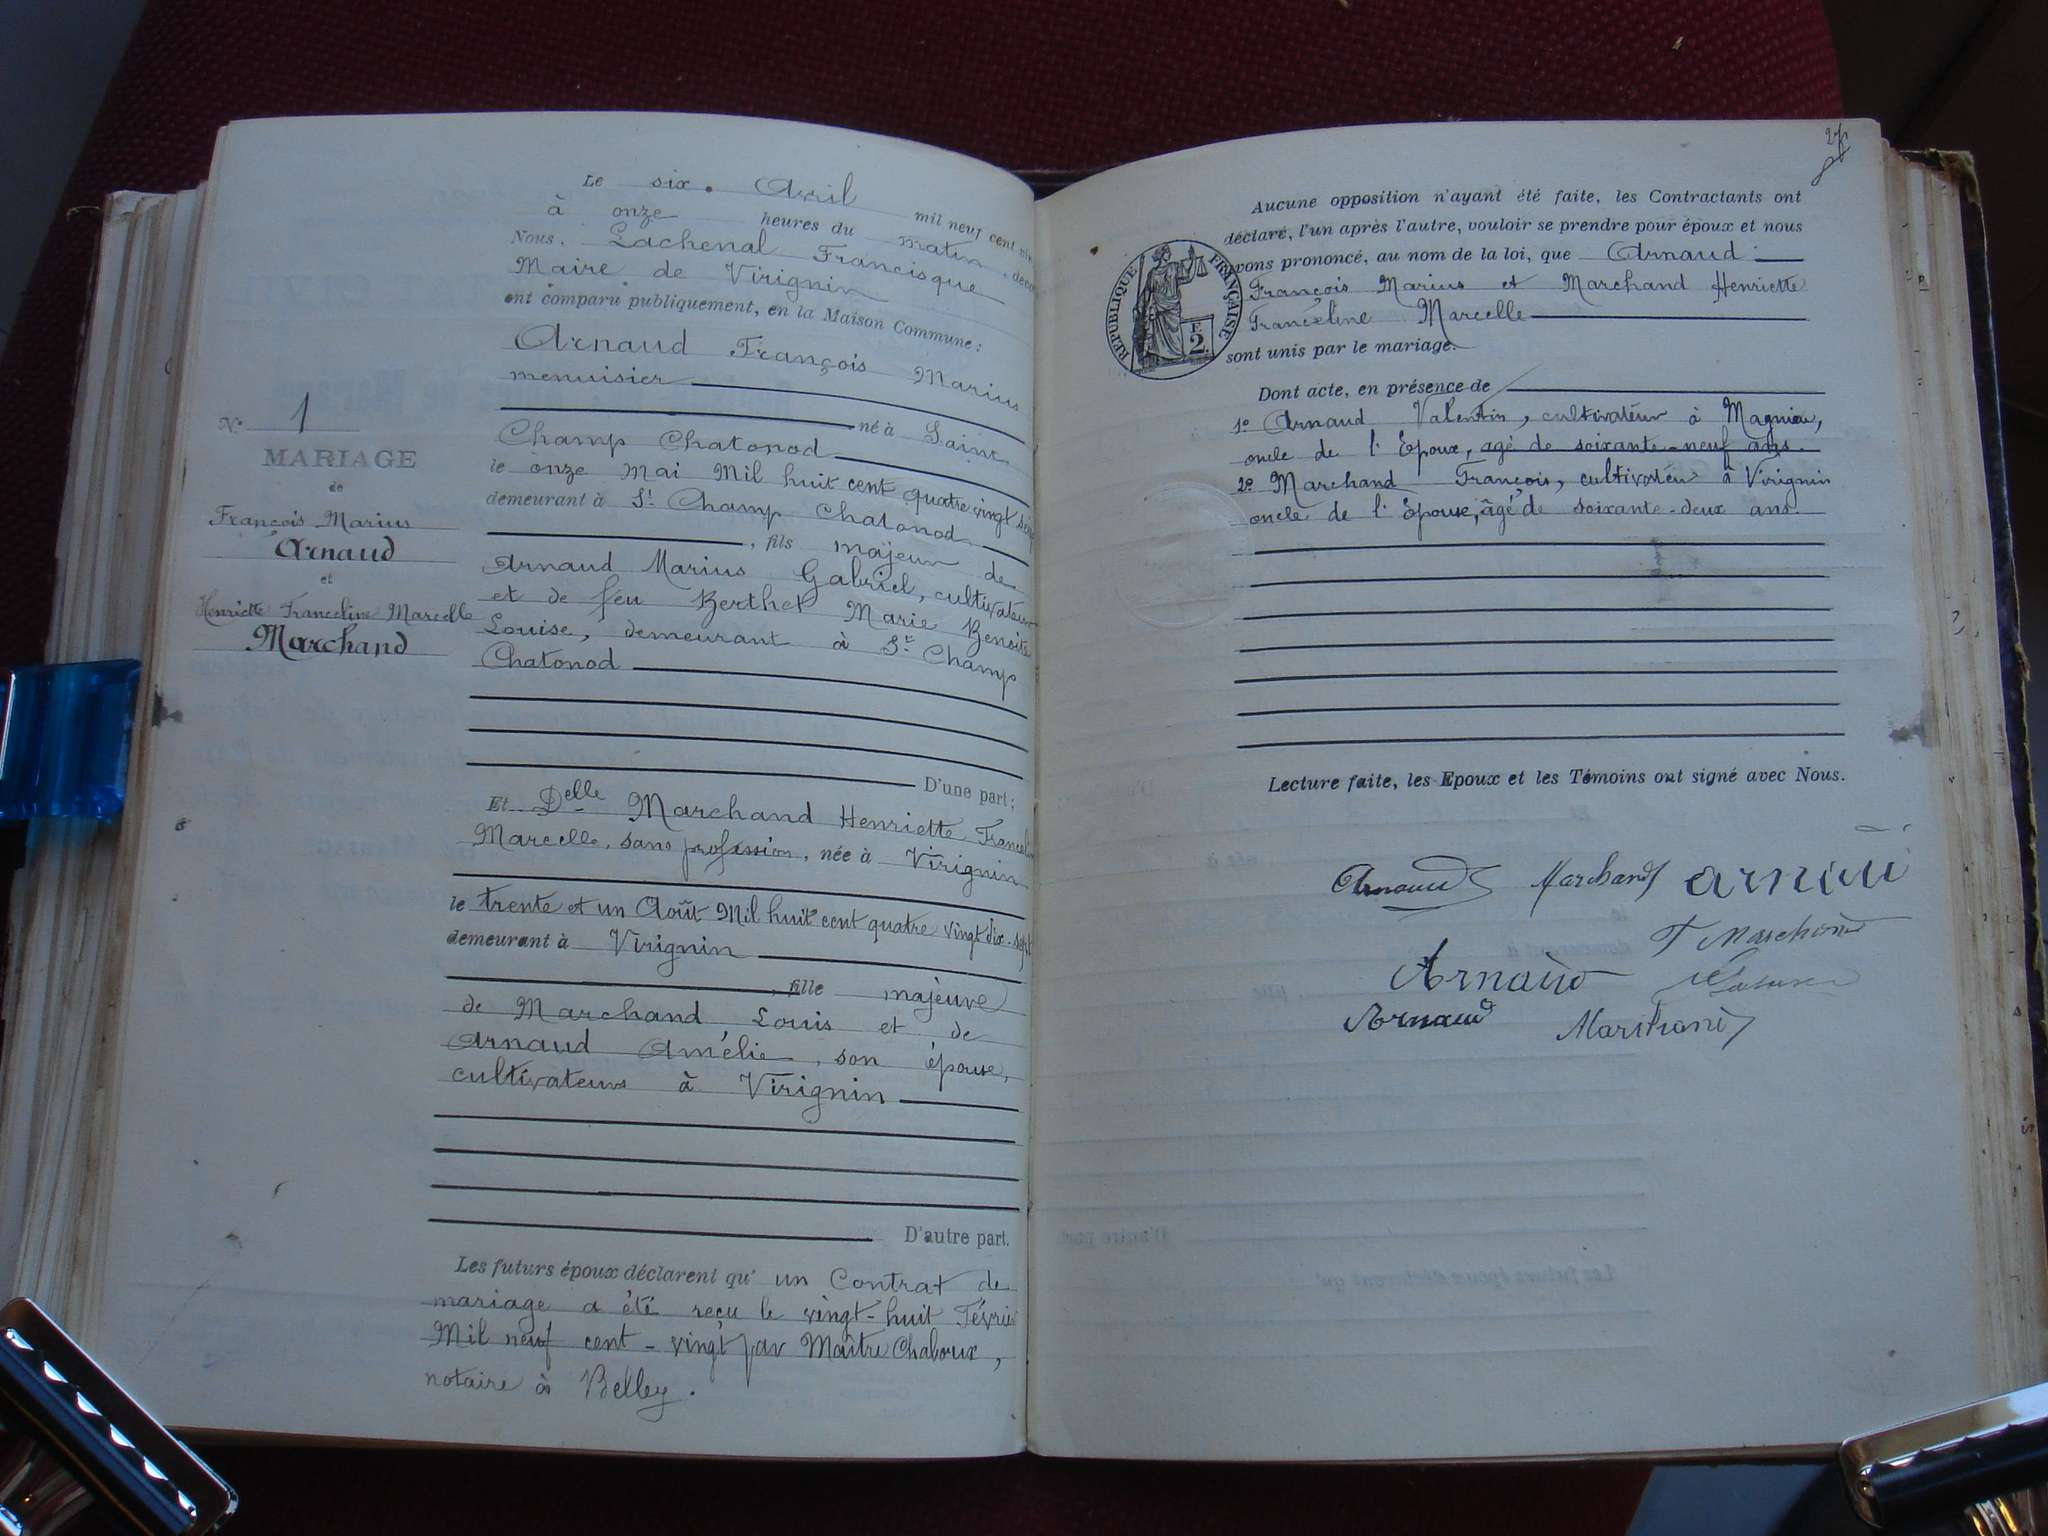 Le six Avril mil neuf cent
à onze heures du matin, devant
Nous, Lachenal Francisque
Maire de Virignin
ont comparu publiquement, en la Maison Commune :
Arnaud François Marius
menuisier
né à Saint
Champ Chatonod
le onze mai Mil huit cent quatre vingt
demeurant à St Champ Chatonod
, fils majeur de
Arnaud Marius Gabriel, cultivateur
et de feu Berthet Marie Benoite
Louise, demeurant à St Champ
Chatonod
D'une part ;
Et Delle Marchand Henriette Franceline
Marcelle, sans profession, née à Virignin
le trente et un Août Mil huit cent quatre vingt dix-sept
demeurant à Virignin
, fille majeure
de Marchand Louis et de
Arnaud Amélie, son épouse,
cultivateurs à Virignin
D'autre part.
Les futurs époux déclarent qu' un Contrat de
mariage a été reçu le vingt-huit Février
Mil neuf cent - vingt par Maître Chaboux,
notaire à Belley.
N° 1
MARIAGE
de
François Marius
Arnaud
et
Henriette Franceline Marcelle
Marchand
Aucune opposition n'ayant été faite, les Contractants ont
déclaré, l'un après l'autre, vouloir se prendre pour époux et nous
avons prononcé, au nom de la loi, que Arnaud
François Marius et Marchand Henriette
Franceline Marcelle
sont unis par le mariage.
RÉPUBLIQUE FRANÇAISE
F.
2.
Dont acte, en présence de
1° Arnaud Valentin, cultivateur à Magnieu,
oncle de l'Epoux, agé de soixante-neuf ans.
2° Marchand François, cultivateur à Virignin
oncle de l'Epouse, âgé de soixante-deux ans.
Lecture faite, les Epoux et les Témoins ont signé avec Nous.
Arnaud Marchand
F Marchand
Arnaud
Arnaud Marchand